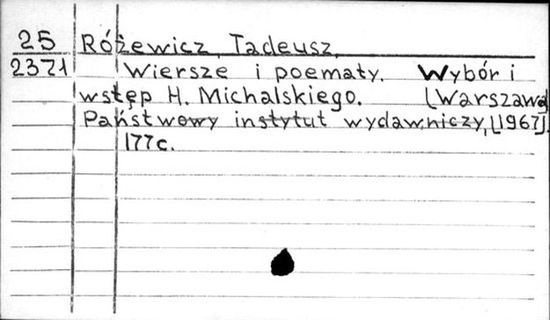 25 Różewicz, Tadeusz.
2371 Wiersze i poematy. Wybór i
wstęp H. Michalskiego. [Warszawa]
Państwowy instytut wydawniczy, [1967].
177c.